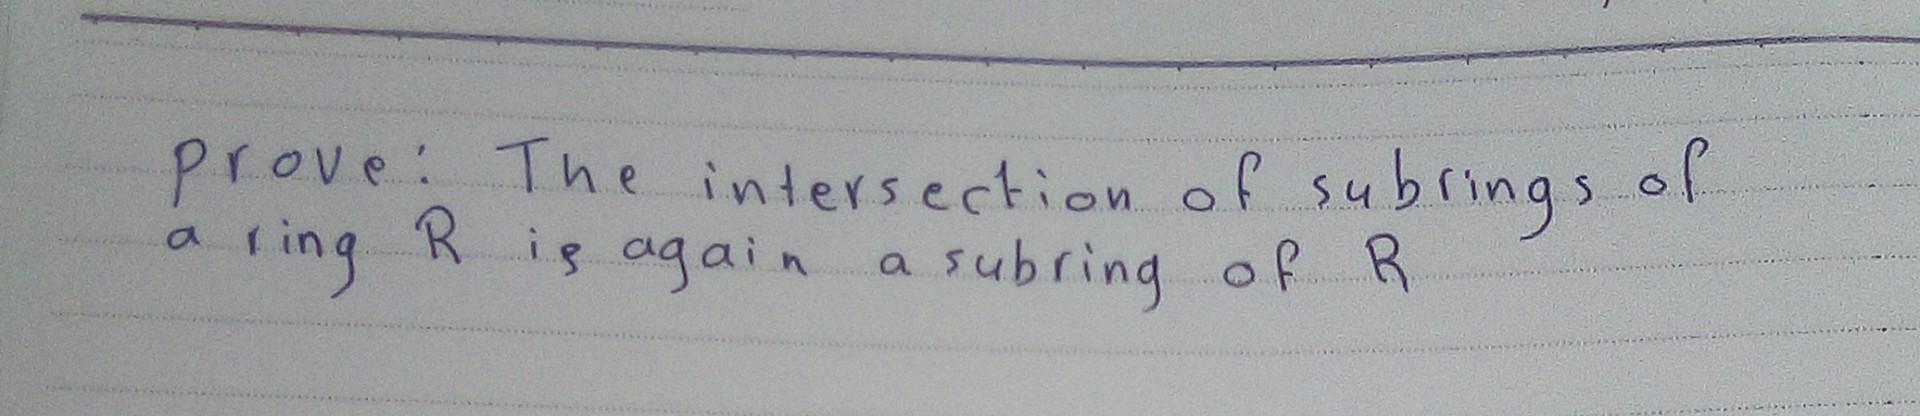 prove: The intersection of subrings of
a ring R is again a subring of R